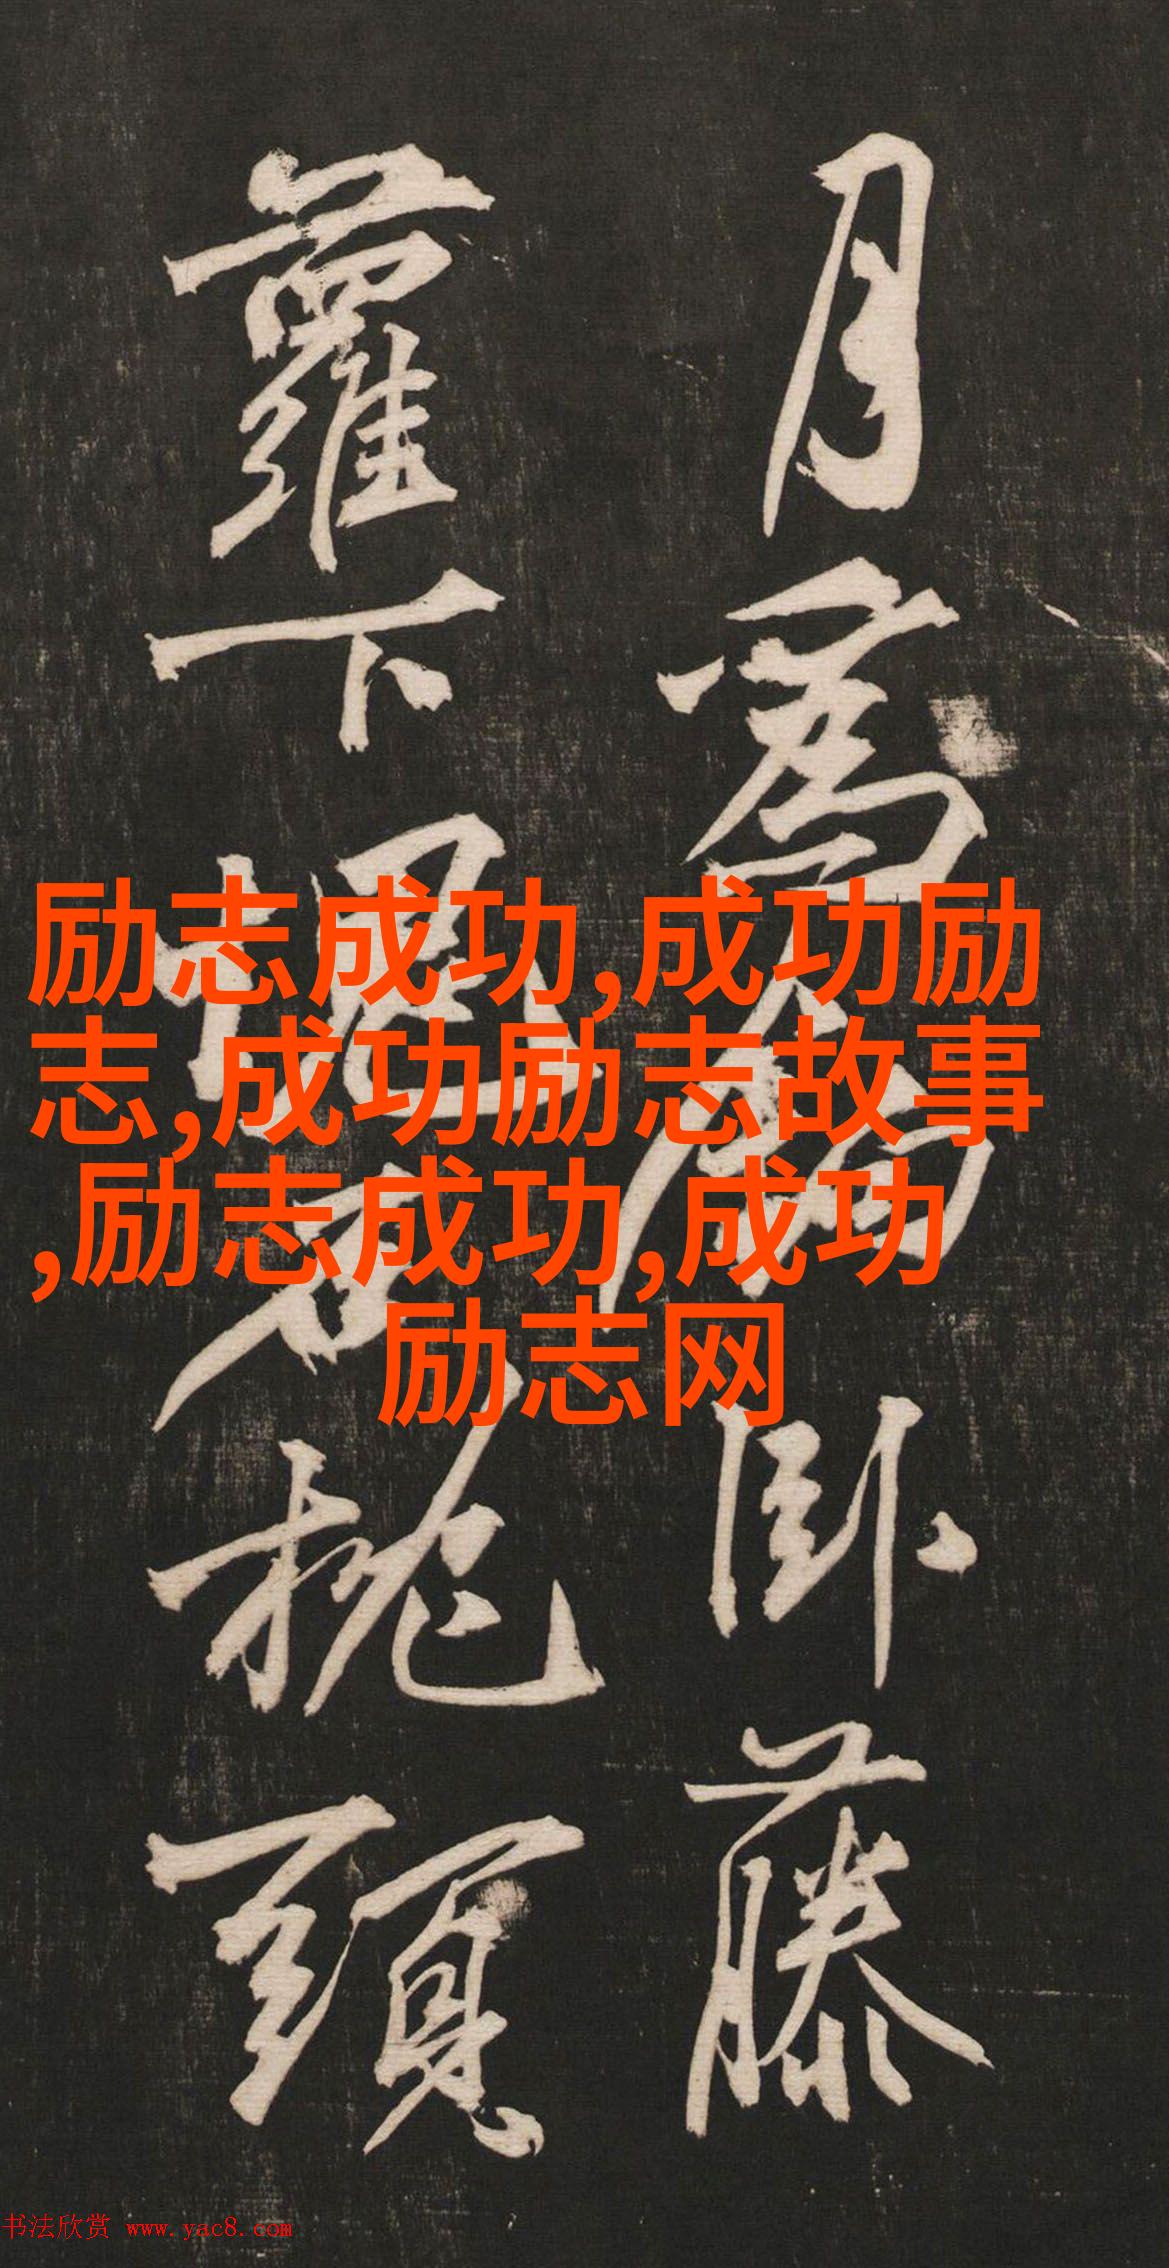 月為卧藤
蘿下枕頭
励志成功,成功励
志,成功励志故事
,励志成功,成功
励志网
书法欣赏 www.yac8.com